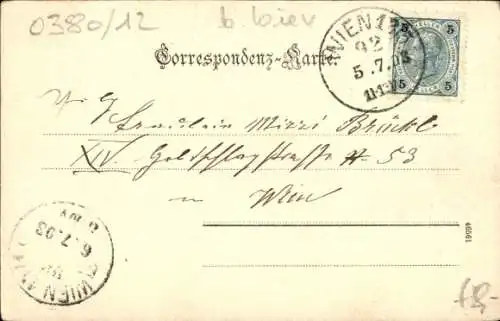 0380/12
b. Wien
Correspondenz-Karte.
WIEN
92
5.7.03
5 5
5 5
Fräulein Mizzi Brückl
XIV. Goldschlagstrasse # 53
Wien
46061
6.7.03
WIEN